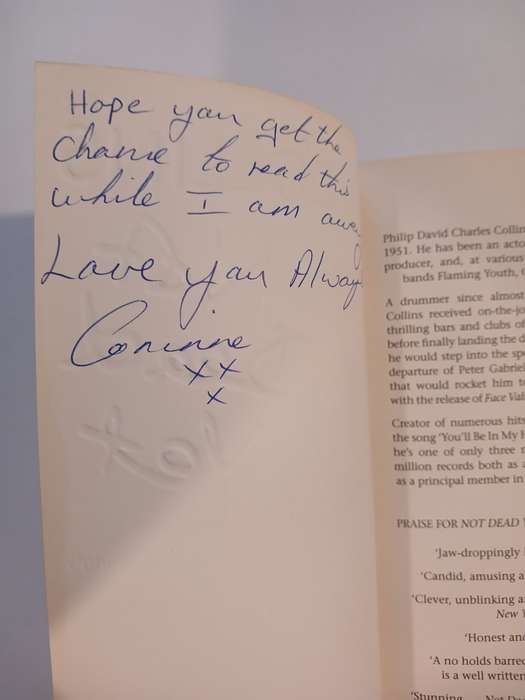 Hope you get the
chance to read this
while I am away
Love you Always
Corinne
xx
x
Philip David Charles Collin
1951. He has been an acto
producer, and, at various
bands Flaming Youth,
A drummer since almost
Collins received on-the-jo
thrilling bars and clubs of
before finally landing the d
he would step into the sp
departure of Peter Gabriel
that would rocket him t
with the release of Face Val
Creator of numerous hits
the song 'You'll Be In My H
he's one of only three
million records both as a
as a principal member in
PRAISE FOR NOT DEAD Y
'Jaw-droppingly
'Candid, amusing a
'Clever, unblinking a
New Y
'Honest and
'A no holds barred
is a well written
'Stunning